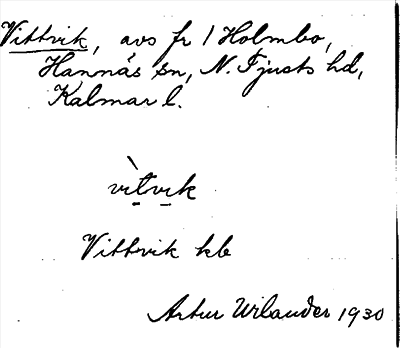 Vittvik, avs fr 1 Holmbo,
Hannäs sn, N. Tjusts hd,
Kalmar l.
vìtvik
Vittvik kb
Artur Wilander 1930